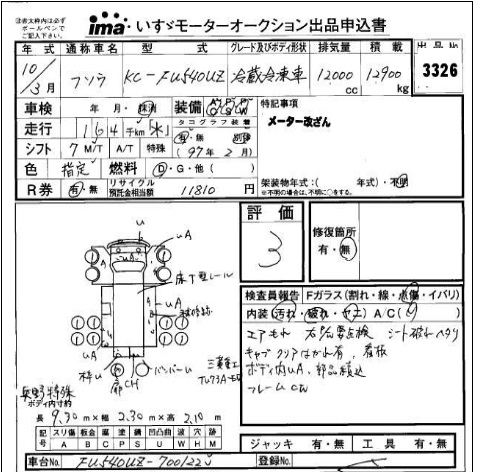 注意太枠内は必ず
ボールペンで
ご記入下さい。
ima いすゞモーターオークション出品申込書
年式 通称車名 型式 グレード及びボディ形状 排気量 積載 出品No
10/3月 フソウ KC-FU540UZ 冷蔵冷凍車 12000cc 12900kg 3326
車検 年 月・抹消 装備 A/C P/S P/W
特記事項
メーター改ざん
走行 164千km「水」 タコグラフ装着 有・無
シフト 7 M/T A/T 特殊 (97年2月)
色 指定 燃料 D・G・他( )
架装物年式:( 年式)・不明
※不明の場合は、不明に○をする。
R券 有・無 リサイクル預託金相当額 11810円
評価
3
修復箇所
有・無
u
uA
A
床下型レール
uA
uA
uA
枠u
CH
バンパーu
検査員報告 Fガラス(割れ・線・点傷・イバリ)
内装(汚れ・破れ・ヤニ) A/C( )
エアもれ シート破れ ヘタリ
キャブクリアはがれ有、看板
ボディ内uA、部品積込
フレーム
ボディ内寸約
長 9.30m×幅 2.30m×高 2.10m
記号 スリ傷 板金 腐 塗 錆 凹凸曲 波 穴 跡
A B C P S U W H M
ジャッキ 有・無 工具 有・無
車台No. FU540UZ-700122 登録No.